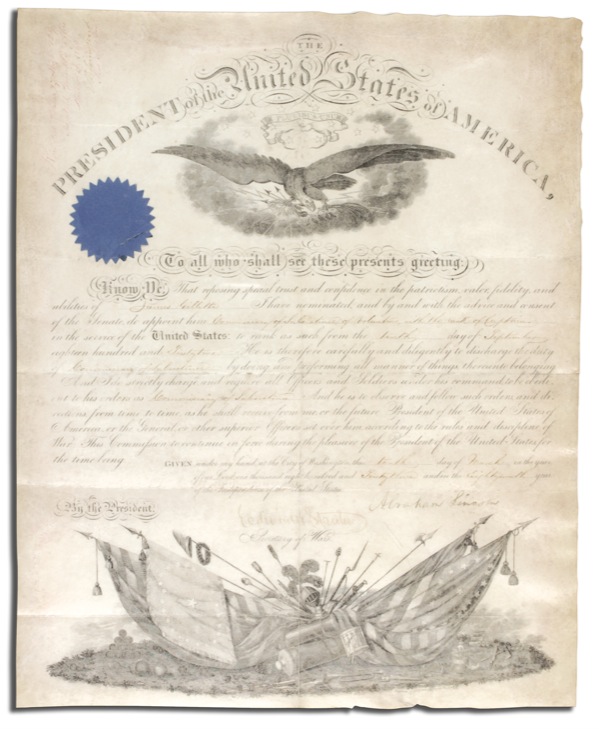 THE
PRESIDENT of the United States of AMERICA,
To all who shall see these presents greeting:
Know Ye, That reposing special trust and confidence in the patriotism, valor, fidelity, and
abilities of I have nominated, and by and with the advice and consent
of the Senate, do appoint him Commissary of Subsistence of Volunteers, with the rank of Captain
in the service of the United States: to rank as such from the tenth day of September
eighteen hundred and Sixty two. He is therefore carefully and diligently to discharge the duty
of Commissary of Subsistence by doing and performing all manner of things thereunto belonging.
And I do strictly charge and require all Officers and Soldiers under his command to be obedi-
ent to his orders as Commissary of Subsistence. And he is to observe and follow such orders, and di-
rections, from time to time, as he shall receive from me, or the future President of the United States of
America, or the General, or other superior Officers set over him, according to the rules and discipline of
War. This Commission to continue in force during the pleasure of the President of the United States, for
the time being.
GIVEN under my hand, at the City of Washington, this tenth day of March in the year
of our Lord one thousand eight hundred and Sixty three and in the year
of the Independence of the United States.
By the President,
Abraham Lincoln
Secretary of War.